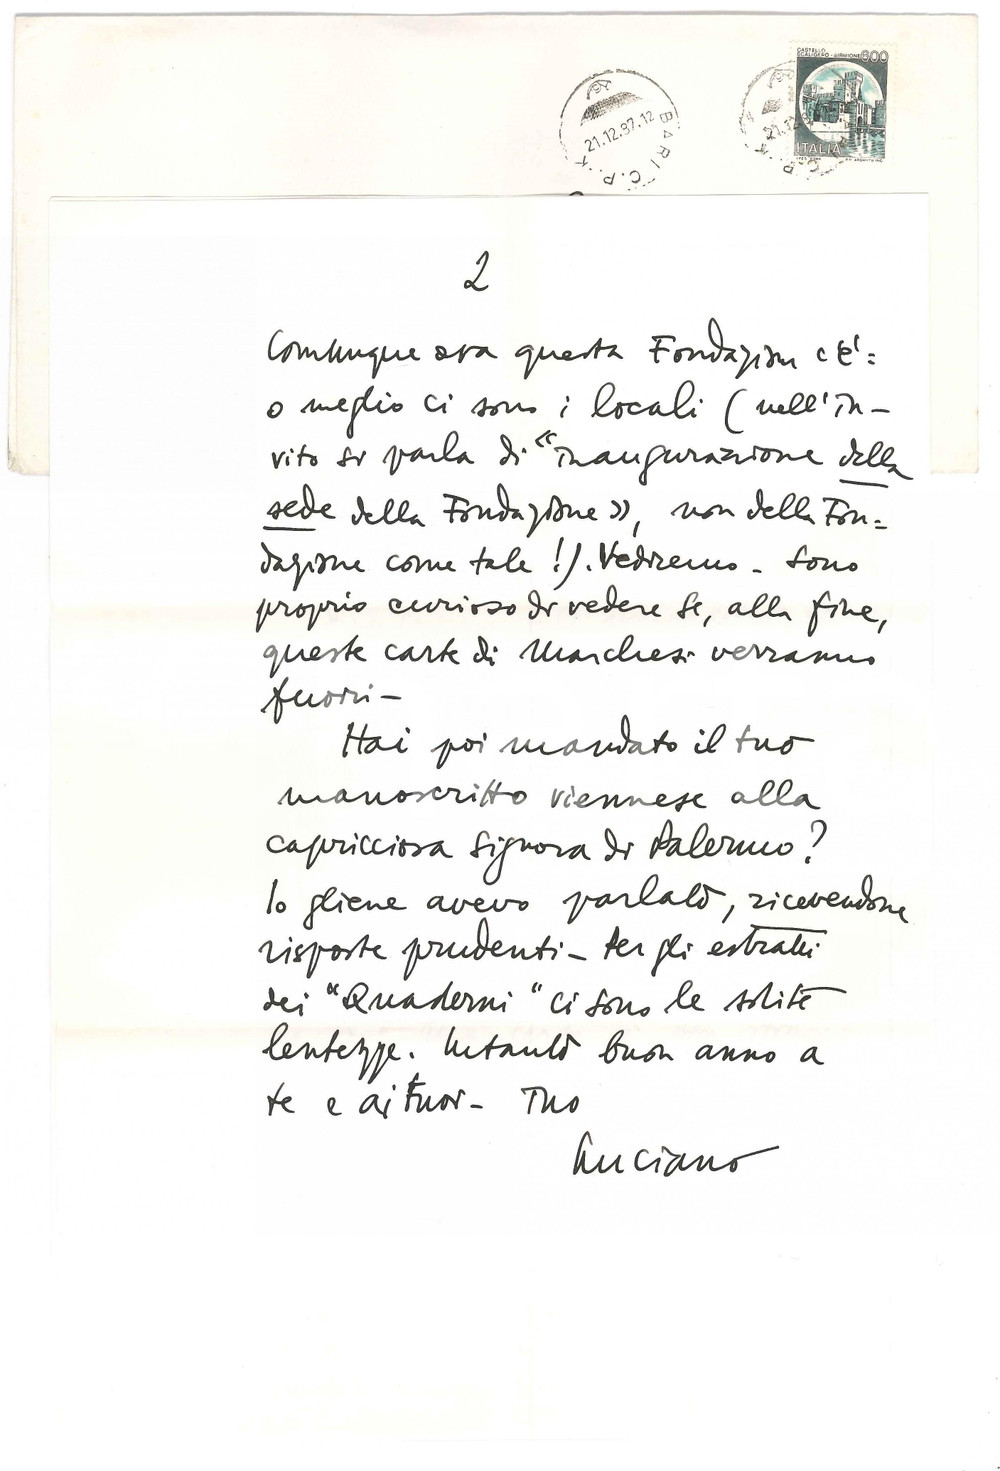 CASTELLO
SCALIGERO - SIRMIONE 800
ITALIA
21.12.87.12
BARI C.P.
21.12.8
C.P.
2
Comunque ora questa Fondazione c'è:
o meglio ci sono i locali (nell'in-
vito si parla di «inaugurazione della
sede della Fondazione», non della Fon=
dazione come tale!). Vedremo - Sono
proprio curioso di vedere se, alla fine,
queste carte di Marchesi verranno
fuori -
Hai poi mandato il tuo
manoscritto viennese alla
capricciosa signora di Palermo?
Io gliene avevo parlato, ricevendone
risposte prudenti - Per gli estratti
dei "Quaderni" ci sono le solite
lentezze. Intanto buon anno a
te e ai tuoi - Tuo
Luciano